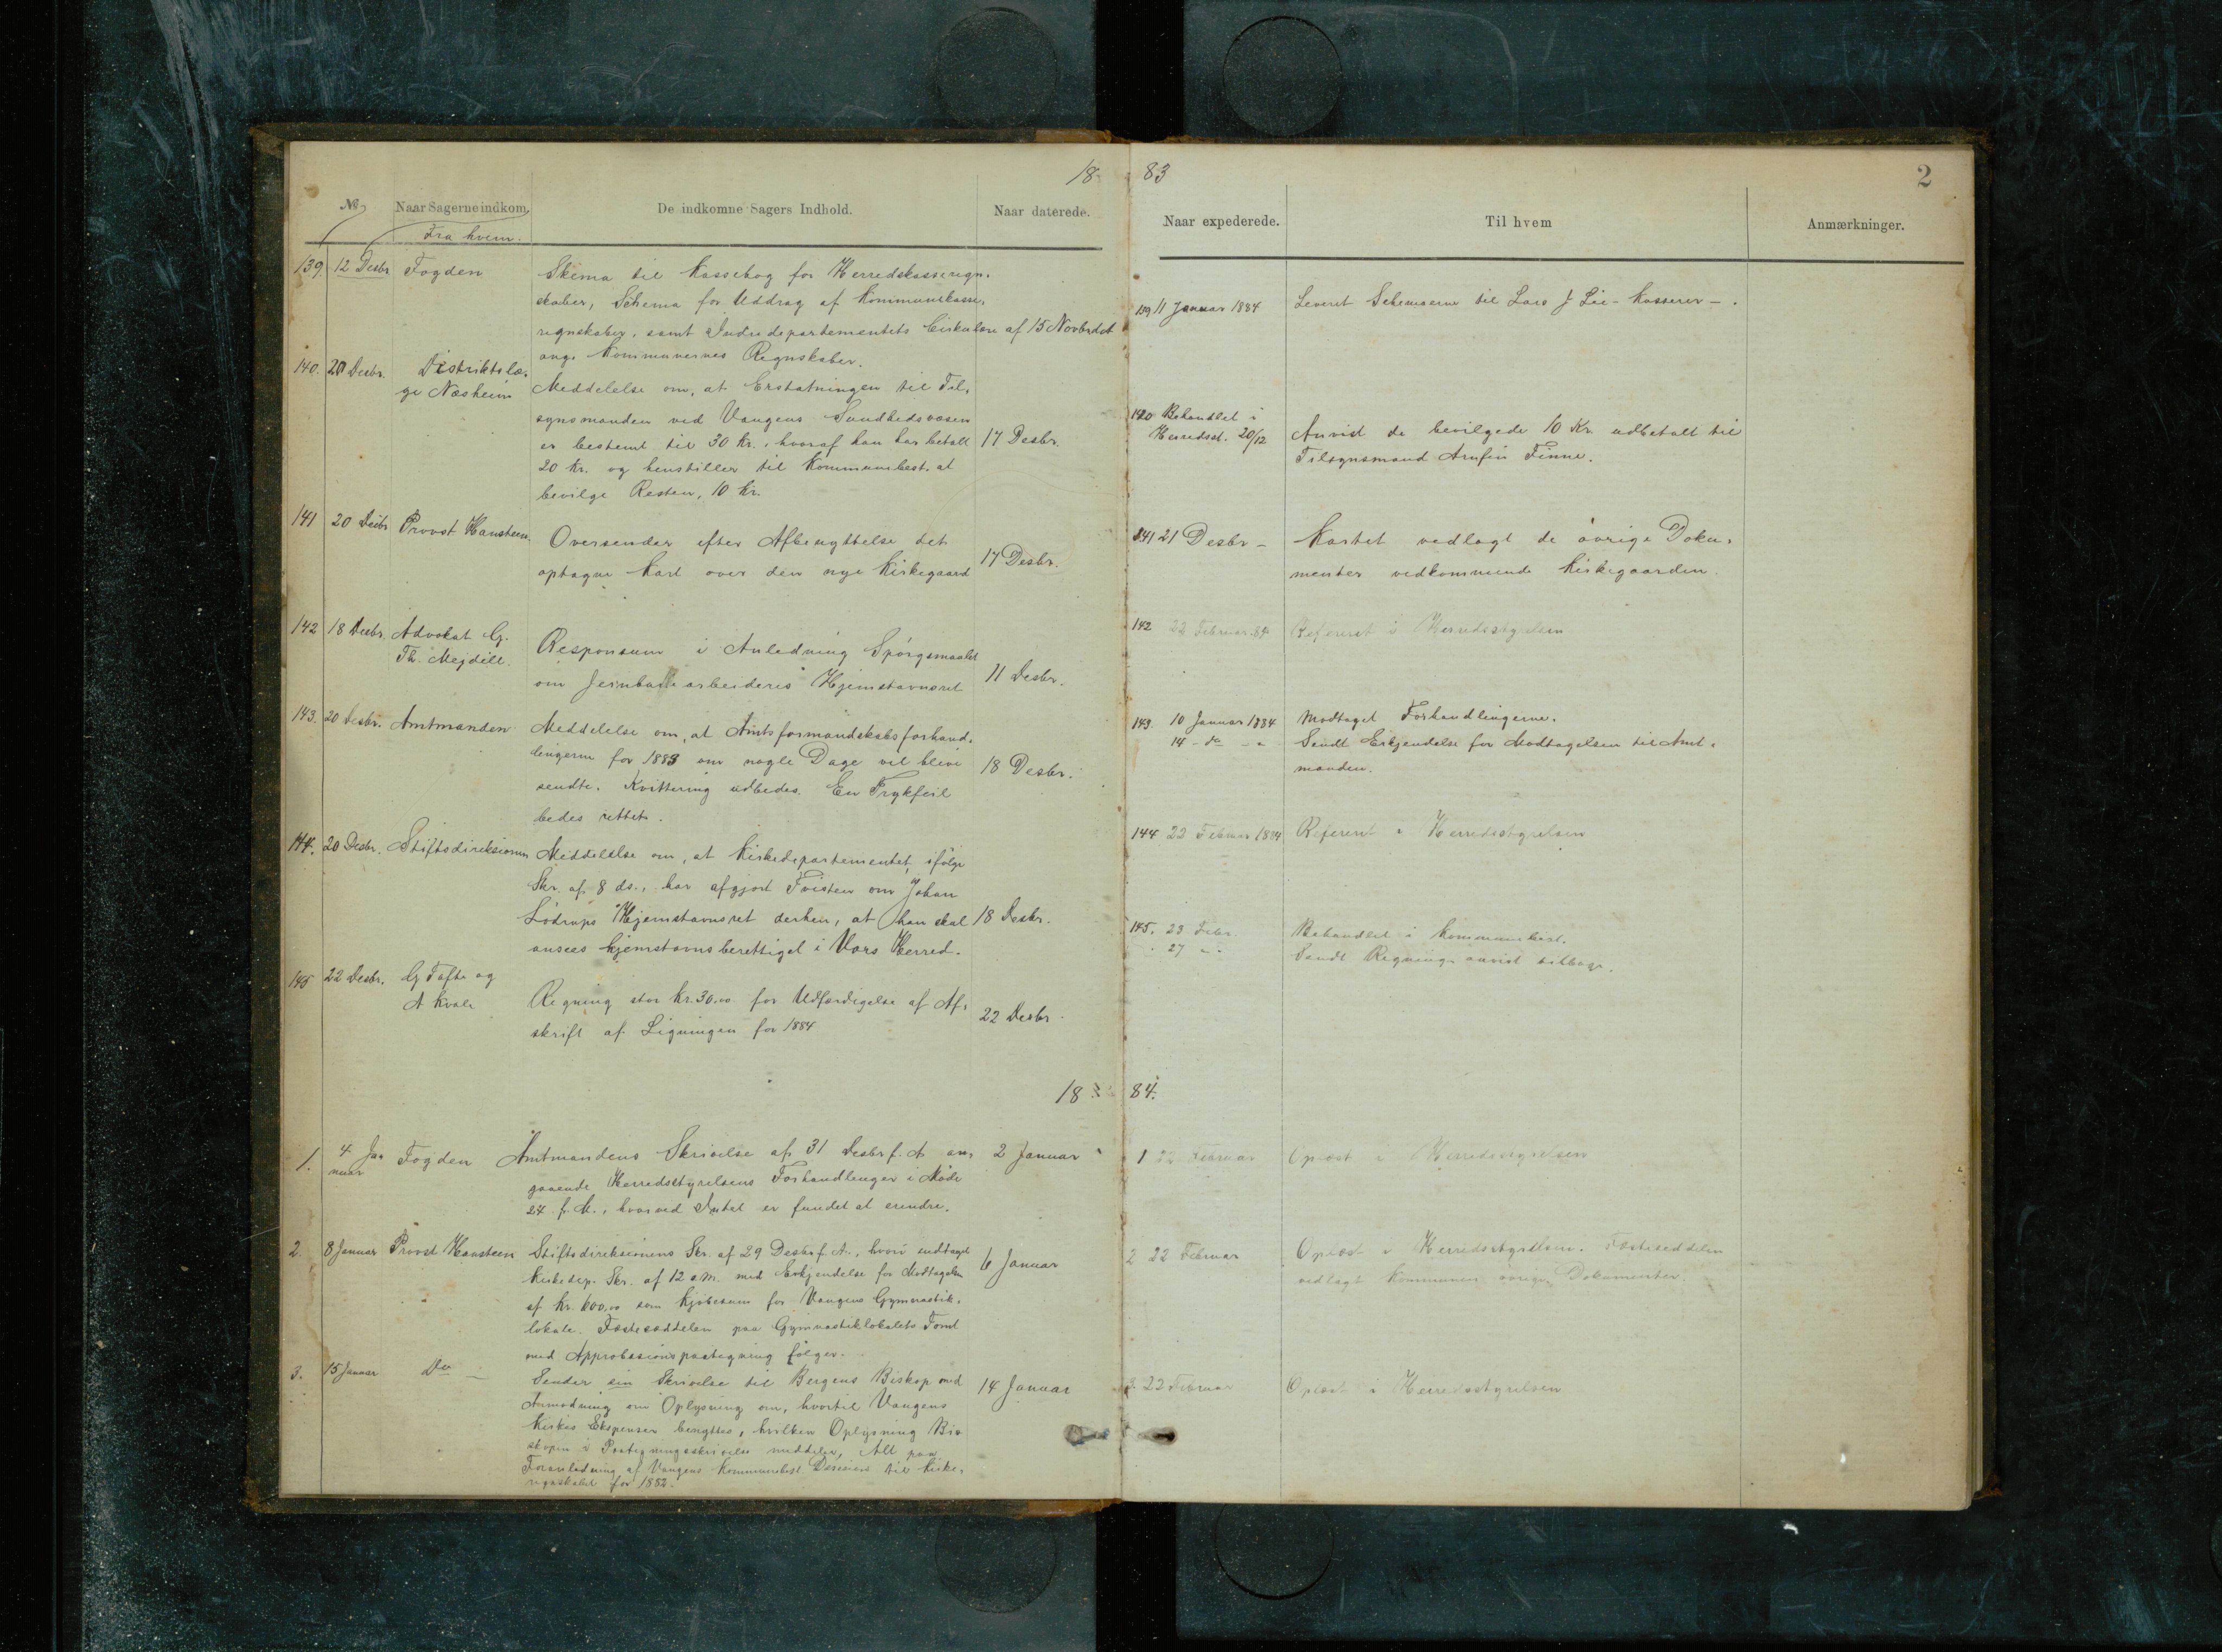 18 83
2
No Naar Sagerne indkom. De indkomne Sagers Indhold. Naar daterede. Naar expederede. Til hvem Anmærkninger.
Fra hvem.
139. 12 Desbr Fogden Skema til Kassebog for Herredskasseregn-
skaber, Schema for Uddrag af Kommunekasse-
regnskaber, samt Indredepartementets Cirkulære af 15 Novbr
ang. Kommunernes Regnskaber.
139 11 Januar 1884 Leveret Schemaerne til Lars J Lie - Kasserer - .
140. 20 Desbr. Distriktslæ-
ge Næsheim
Meddelelse om, at Erstatningen til Til-
synsmanden ved Vangens Sundhedsvæsen
er bestemt til 30 Kr., hvoraf han har betalt 17 Desbr.
20 Kr. og henstiller til Kommunebest. at
bevilge Resten, 10 Kr.
140 Behandlet i
Herredsst. 20/12
Anvist de bevilgede 10 Kr. udbetalt til
Tilsynsmand Arnfin Finne.
141 20 Desbr Provst Hansteen.
Oversender efter Afbenyttelse det
optagne Kart over den nye Kirkegaard 17 Desbr.
141 21 Desbr - Kartet vedlagt de øvrige Doku-
menter vedkommende Kirkegaarden.
142 18 Desbr. Advokat G.
Th. Mejdell.
Responsum i Anledning Spørgsmaalet
om Jernbanearbeideres Hjemstavnsret 11 Desbr.
142 22 Februar 84 Refereret i Herredsstyrelsen
143. 20 Desbr. Amtmanden Meddelelse om, at Amtsformandskabsforhand-
lingerne for 1883 om nogle Dage vil blive 18 Desbr.
sendte. Kvittering udbedes. En Trykfeil
bedes rettet.
143. 10 Januar 1884 Modtaget Forhandlingerne.
14 - do - " Sendt Erkjendelse for Modtagelsen til Amt-
manden.
144. 20 Desbr. Stiftsdireksionen Meddelelse om, at Kirkedepartementet, ifølge
Skr. af 8 ds., har afgjort Tvisten om Johan
Lodrups Hjemstavnsret derhen, at han skal 18 Desbr.
ansees hjemstavnsberettiget i Vors Herred.
144 22 Februar 1884 Refereret i Herredsstyrelsen
145 22 Desbr. G Tafte og
A Kvale
Regning stor Kr. 30,00 for Udfærdigelse af Af-
skrift af Ligningen for 1884 22 Desbr.
145. 23 Febr. Behandlet i Kommunebest.
27 " Sendt Regning anvist tilbage.
18 84.
1. 4 Ja-
nuar
Fogden Amtmandens Skrivelse af 31 Desbr f. A an- 2 Januar
gaaende Herredsstyrelsens Forhandlinger i Møde
24 f. M., hvorved Intet er fundet at erindre.
1 22 Februar Oplæst i Herredsstyrelsen
2. 8 Januar Provst Hansteen Stiftsdireksionens Skr. af 29 Desbr f. A., hvori indtaget
Kirkedep. Skr. af 12 s. M. med Erkjendelse for Modtagelsen 6 Januar
af Kr. 600,00 som Kjøbesum for Vangens Gymnastik-
lokale. Fæsteseddelen paa Gymnastiklokalets Tomt
med Approbasionspaategning følger.
2 22 Februar Oplæst i Herredsstyrelsen. Fæsteseddelen
vedlagt Kommunens øvrige Dokumenter
3. 15 Januar Do - Sender sin Skrivelse til Bergens Biskop med
Anmodning om Oplysning om, hvortil Vangens 14 Januar
Kirkes Ekspenser benyttes, hvilken Oplysning Bi-
skopen i Paategningsskrivelse meddeler, Alt paa
Foranledning af Vangens Kommunebest Desision til Kirke-
regnskabet for 1882.
3. 22 Februar Oplæst i Herredsstyrelsen